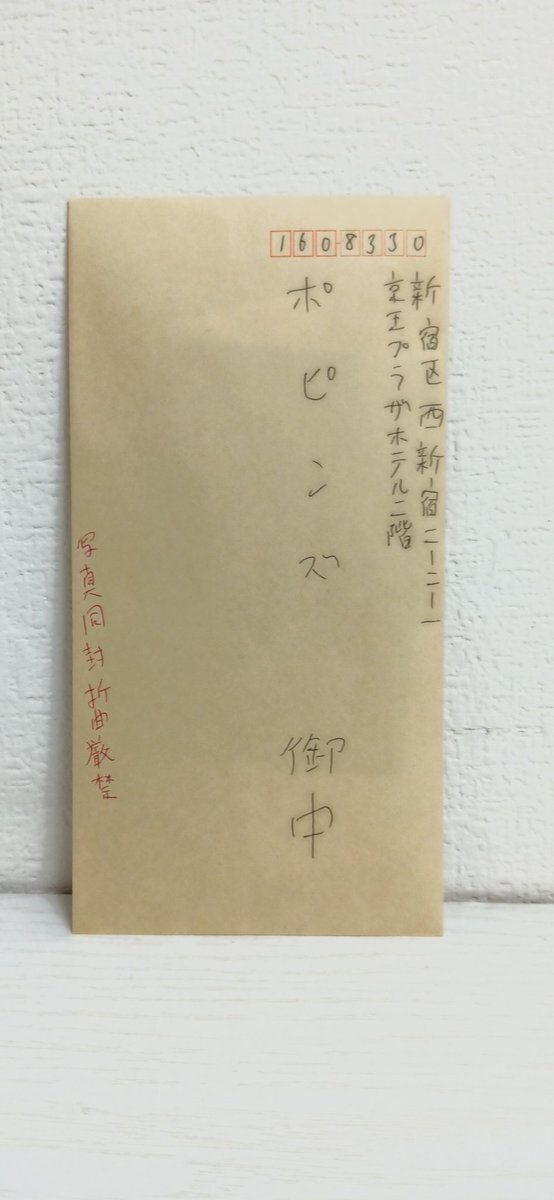 160-8330
新宿区西新宿二ー二ー一
京王プラザホテル二階
ポピンズ 御中
写真同封折曲厳禁